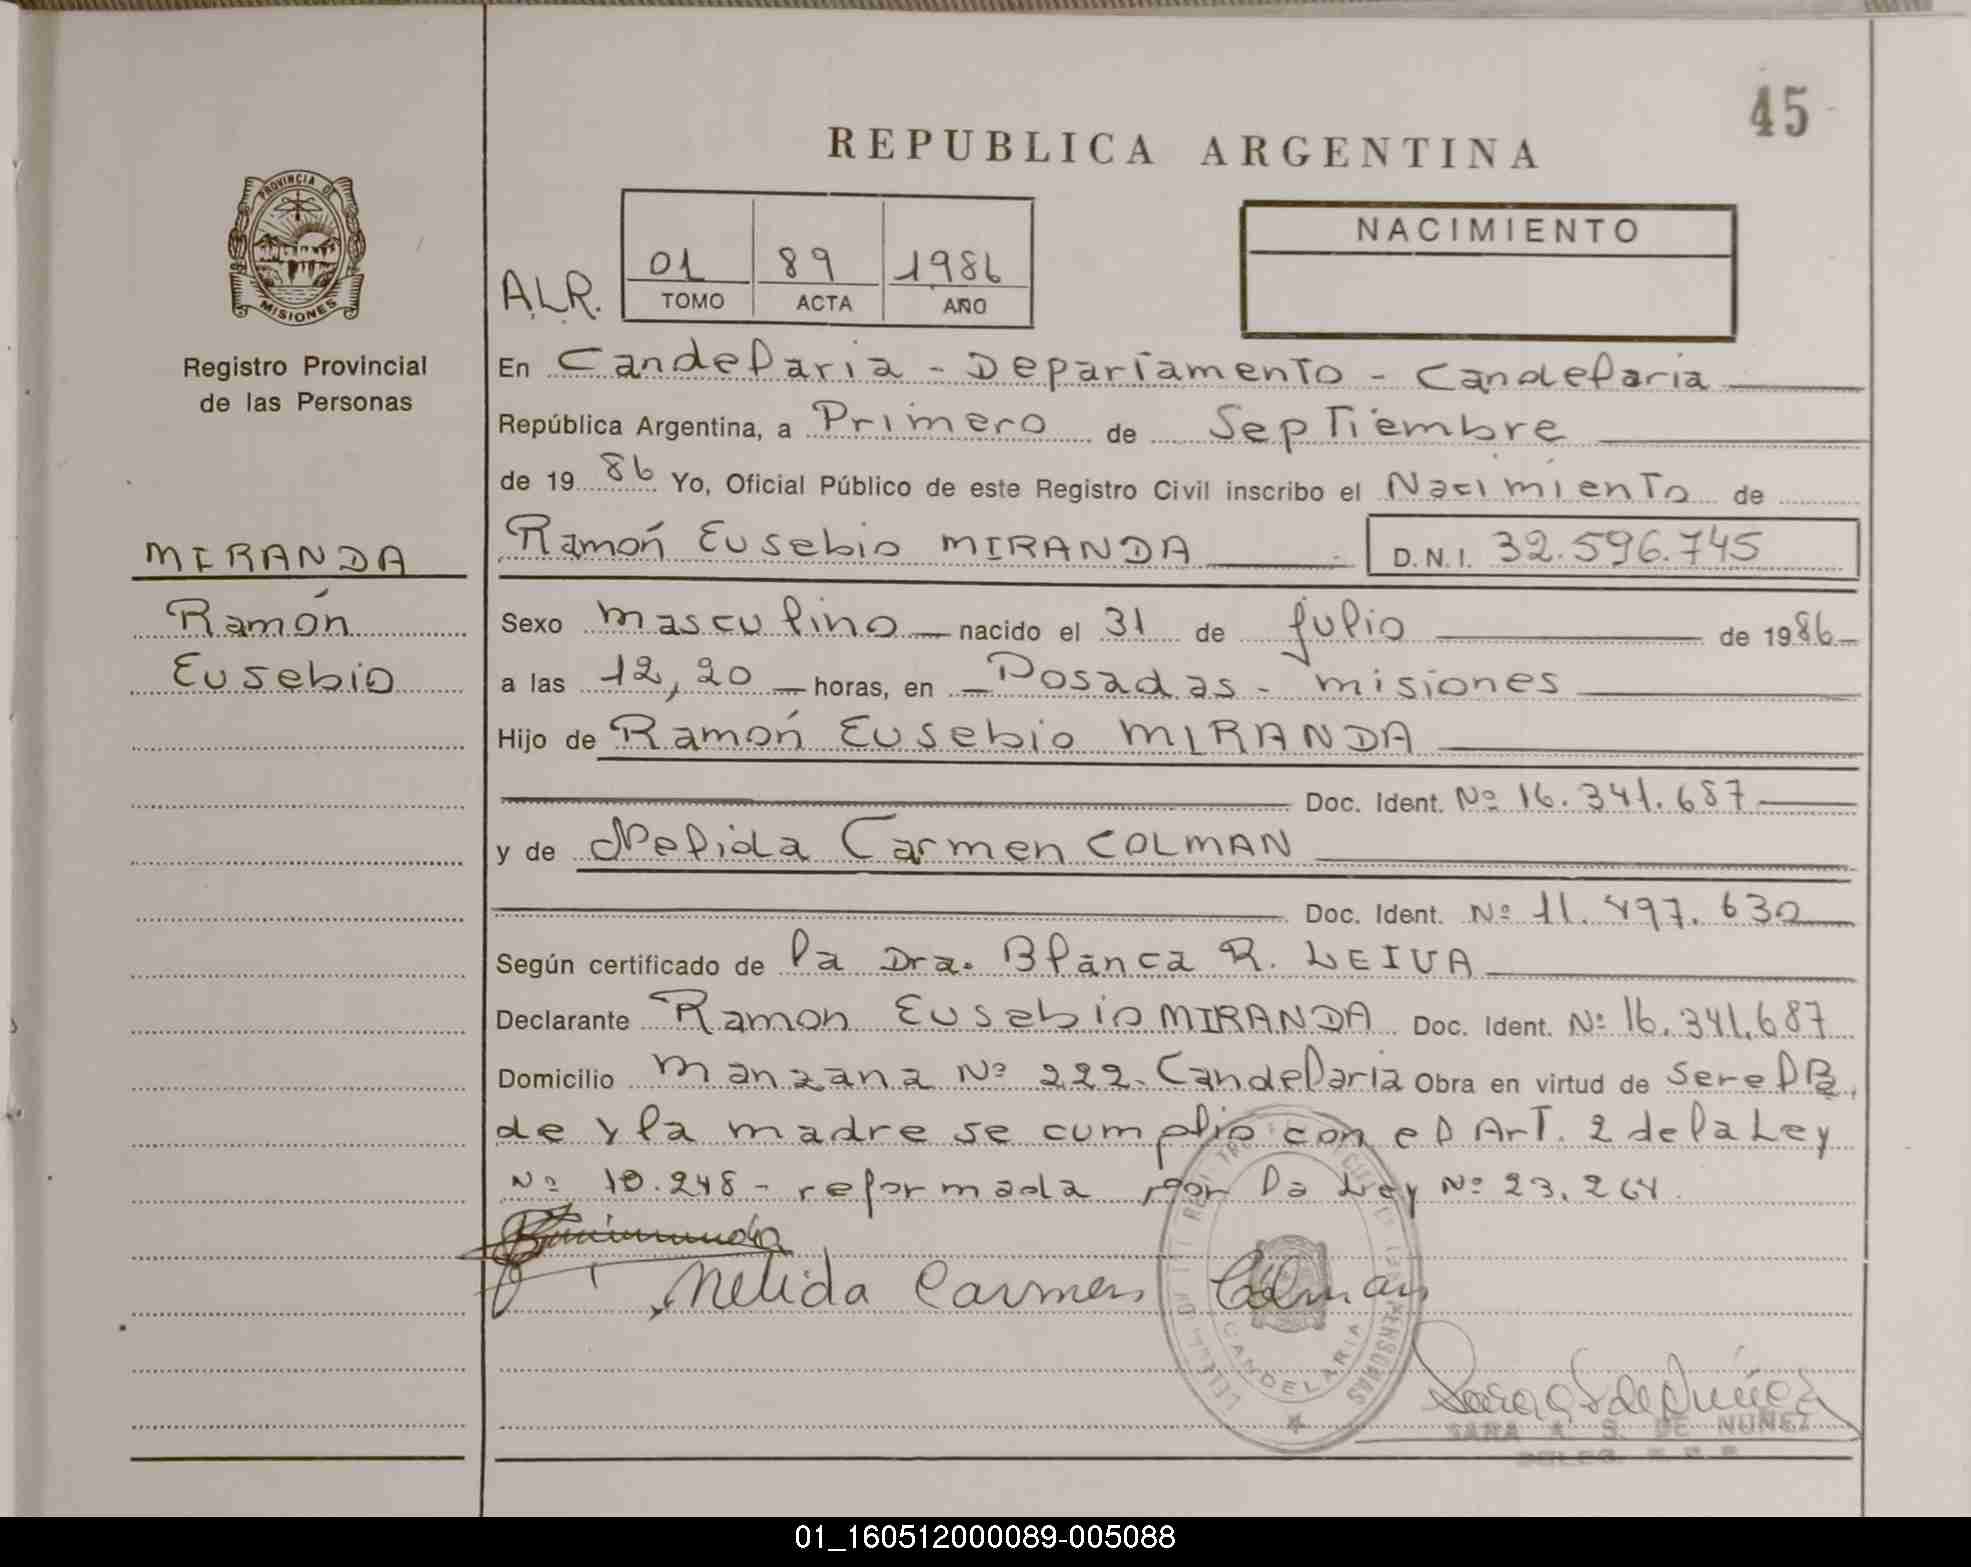 45
REPUBLICA ARGENTINA
PROVINCIA DE
MISIONES
Registro Provincial
de las Personas
MIRANDA
Ramón
Eusebio
NACIMIENTO
A.L.R.
01 89 1986
TOMO ACTA AÑO
En Candelaria - Departamento - Candelaria
República Argentina, a Primero de Septiembre
de 19 86 Yo, Oficial Público de este Registro Civil inscribo el Nacimiento de
Ramón Eusebio MIRANDA D.N.I. 32.596.745
Sexo masculino nacido el 31 de julio de 1986
a las 12,20 horas, en Posadas - misiones
Hijo de Ramón Eusebio MIRANDA
Doc. Ident. Nº 16.341.687
y de Nelida Carmen COLMAN
Doc. Ident. Nº 11.497.630
Según certificado de la Dra. Blanca R. LEIVA
Declarante Ramon Eusebio MIRANDA Doc. Ident. Nº 16.341.687
Domicilio manzana Nº 222. Candelaria Obra en virtud de ser el Pa
de y la madre se cumplio con el Art. 2 de la Ley
Nº 10.248 - reformada por la Ley Nº 23.264.
Nelida Carmen Colman
CANDELARIA
SARA A. S. DE NUÑEZ
01_160512000089-005088